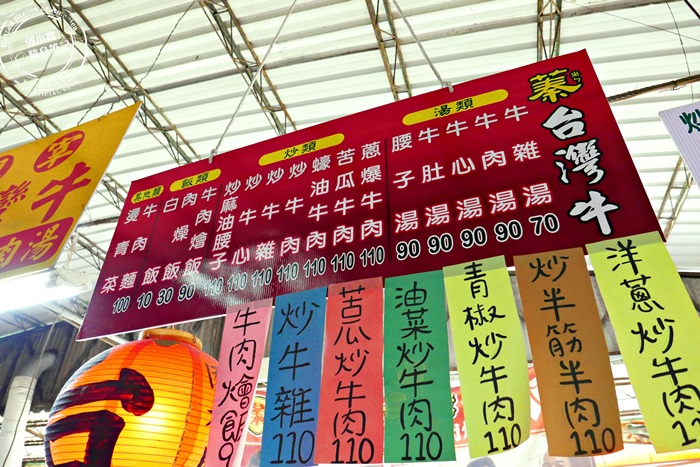 蓁台灣牛
湯類
牛雜湯 70
牛肉湯 90
牛心湯 90
牛肚湯 90
腰子湯 90
炒類
蔥爆牛肉 110
苦瓜牛肉 110
蠔油牛肉 110
炒牛肉 110
炒牛雜 110
炒牛心 110
炒麻油腰子 110
飯類
牛肉燴飯 90
肉燥飯 30
白飯 10
牛肉麵 100
燙青菜
牛
肉湯
牛肉燴飯 9
炒牛雜 110
苦瓜炒牛肉 110
油菜炒牛肉 110
青椒炒牛肉 110
炒半筋半肉 110
洋蔥炒牛肉 110
炒